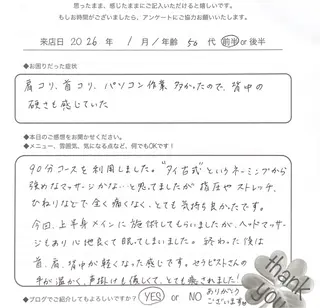 思ったまま、感じたままにご記入いただけると嬉しいです。
もしお時間がございましたら、アンケートにご協力お願いします。
来店日 2026年 1月 / 年齢 50代 前半 or 後半
◆お困りだった症状
肩コリ、首コリ、パソコン作業多かったので、背中の
硬さも感じていた
◆本日のご感想をお聞かせください。
◆メニュー、雰囲気、気になる点など、何でもOKです!
90分コースを利用しました。"タイ古式"というネーミングから
強めなマッサージかな?と思ってましたが指圧やストレッチ、
ひねりなどで全く痛くなく、とても気持ち良かったです。
今回、上半身メインに施術してもらいましたが、ヘッドマッサー
ジもあり心地良くて眠ってしまいました。終わった後は
首、肩、背中が軽くなった感じです。セラピストさんの
手が温かく、声掛けも優しくて、とても癒されました!
◆ブログでご紹介してもよろしいですか? YES or NO ありがとう
ございます
thank you